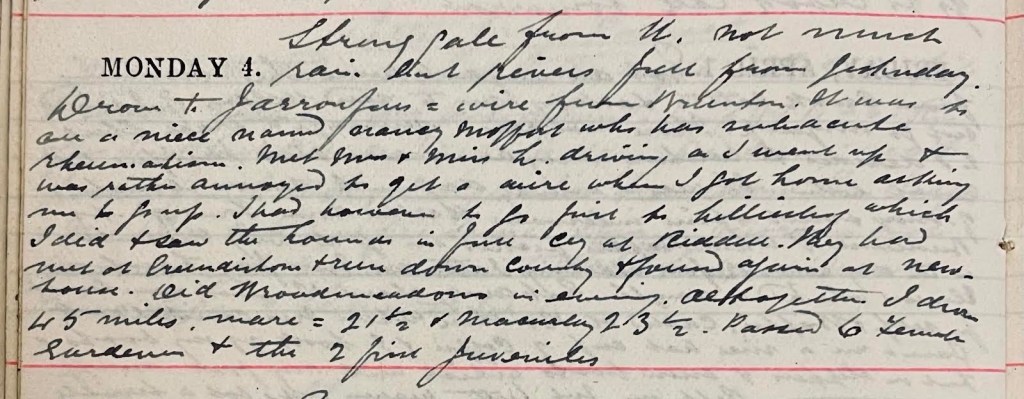 Strong gale from W. not much
MONDAY 4. rain but rivers full from yesterday.
Drove to = wire from Wrenton. It was to
see a niece named Nancy Moffat who has subacute
rheumatism. Met Mrs & Miss L. driving as I went up &
was rather annoyed to get a wire when I got home asking
me to go up. I had however to go first to Lilliesleaf which
I did & saw the hounds in full cry at Riddell. They had
met at Greendistone & run down county & found again at New-
house. Did Woodmeadows in evening. Altogether I drove
45 miles. mare = 21½ & Macaulay 23½. Passed 6 Female
Gardeners & the 2 first Juveniles